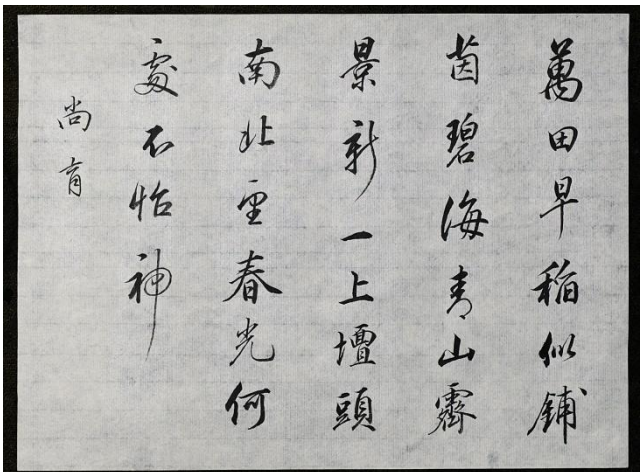 萬田早稻似鋪
茵碧海青山霽
景新一上壇頭
南北望春光何
處不怡神
尚育